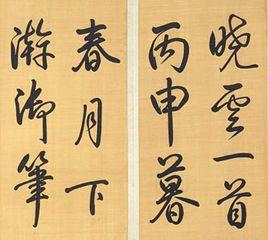 曉雲一首
丙申暮
春月下
澣御筆